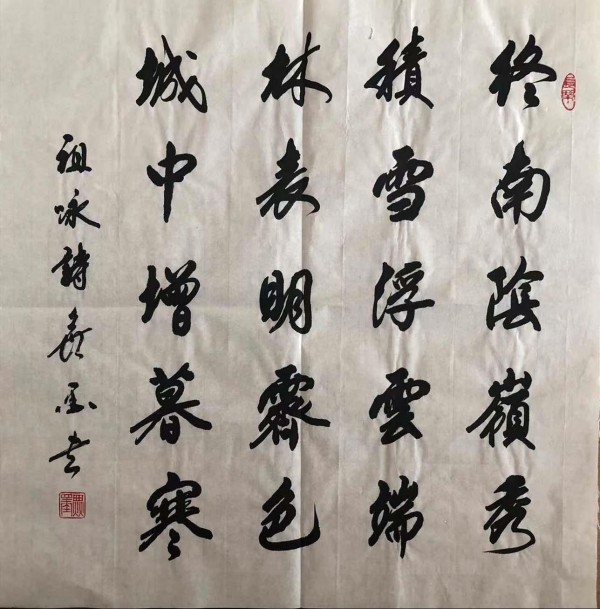 終南陰嶺秀
積雪浮雲端
林表明霽色
城中增暮寒
祖咏詩